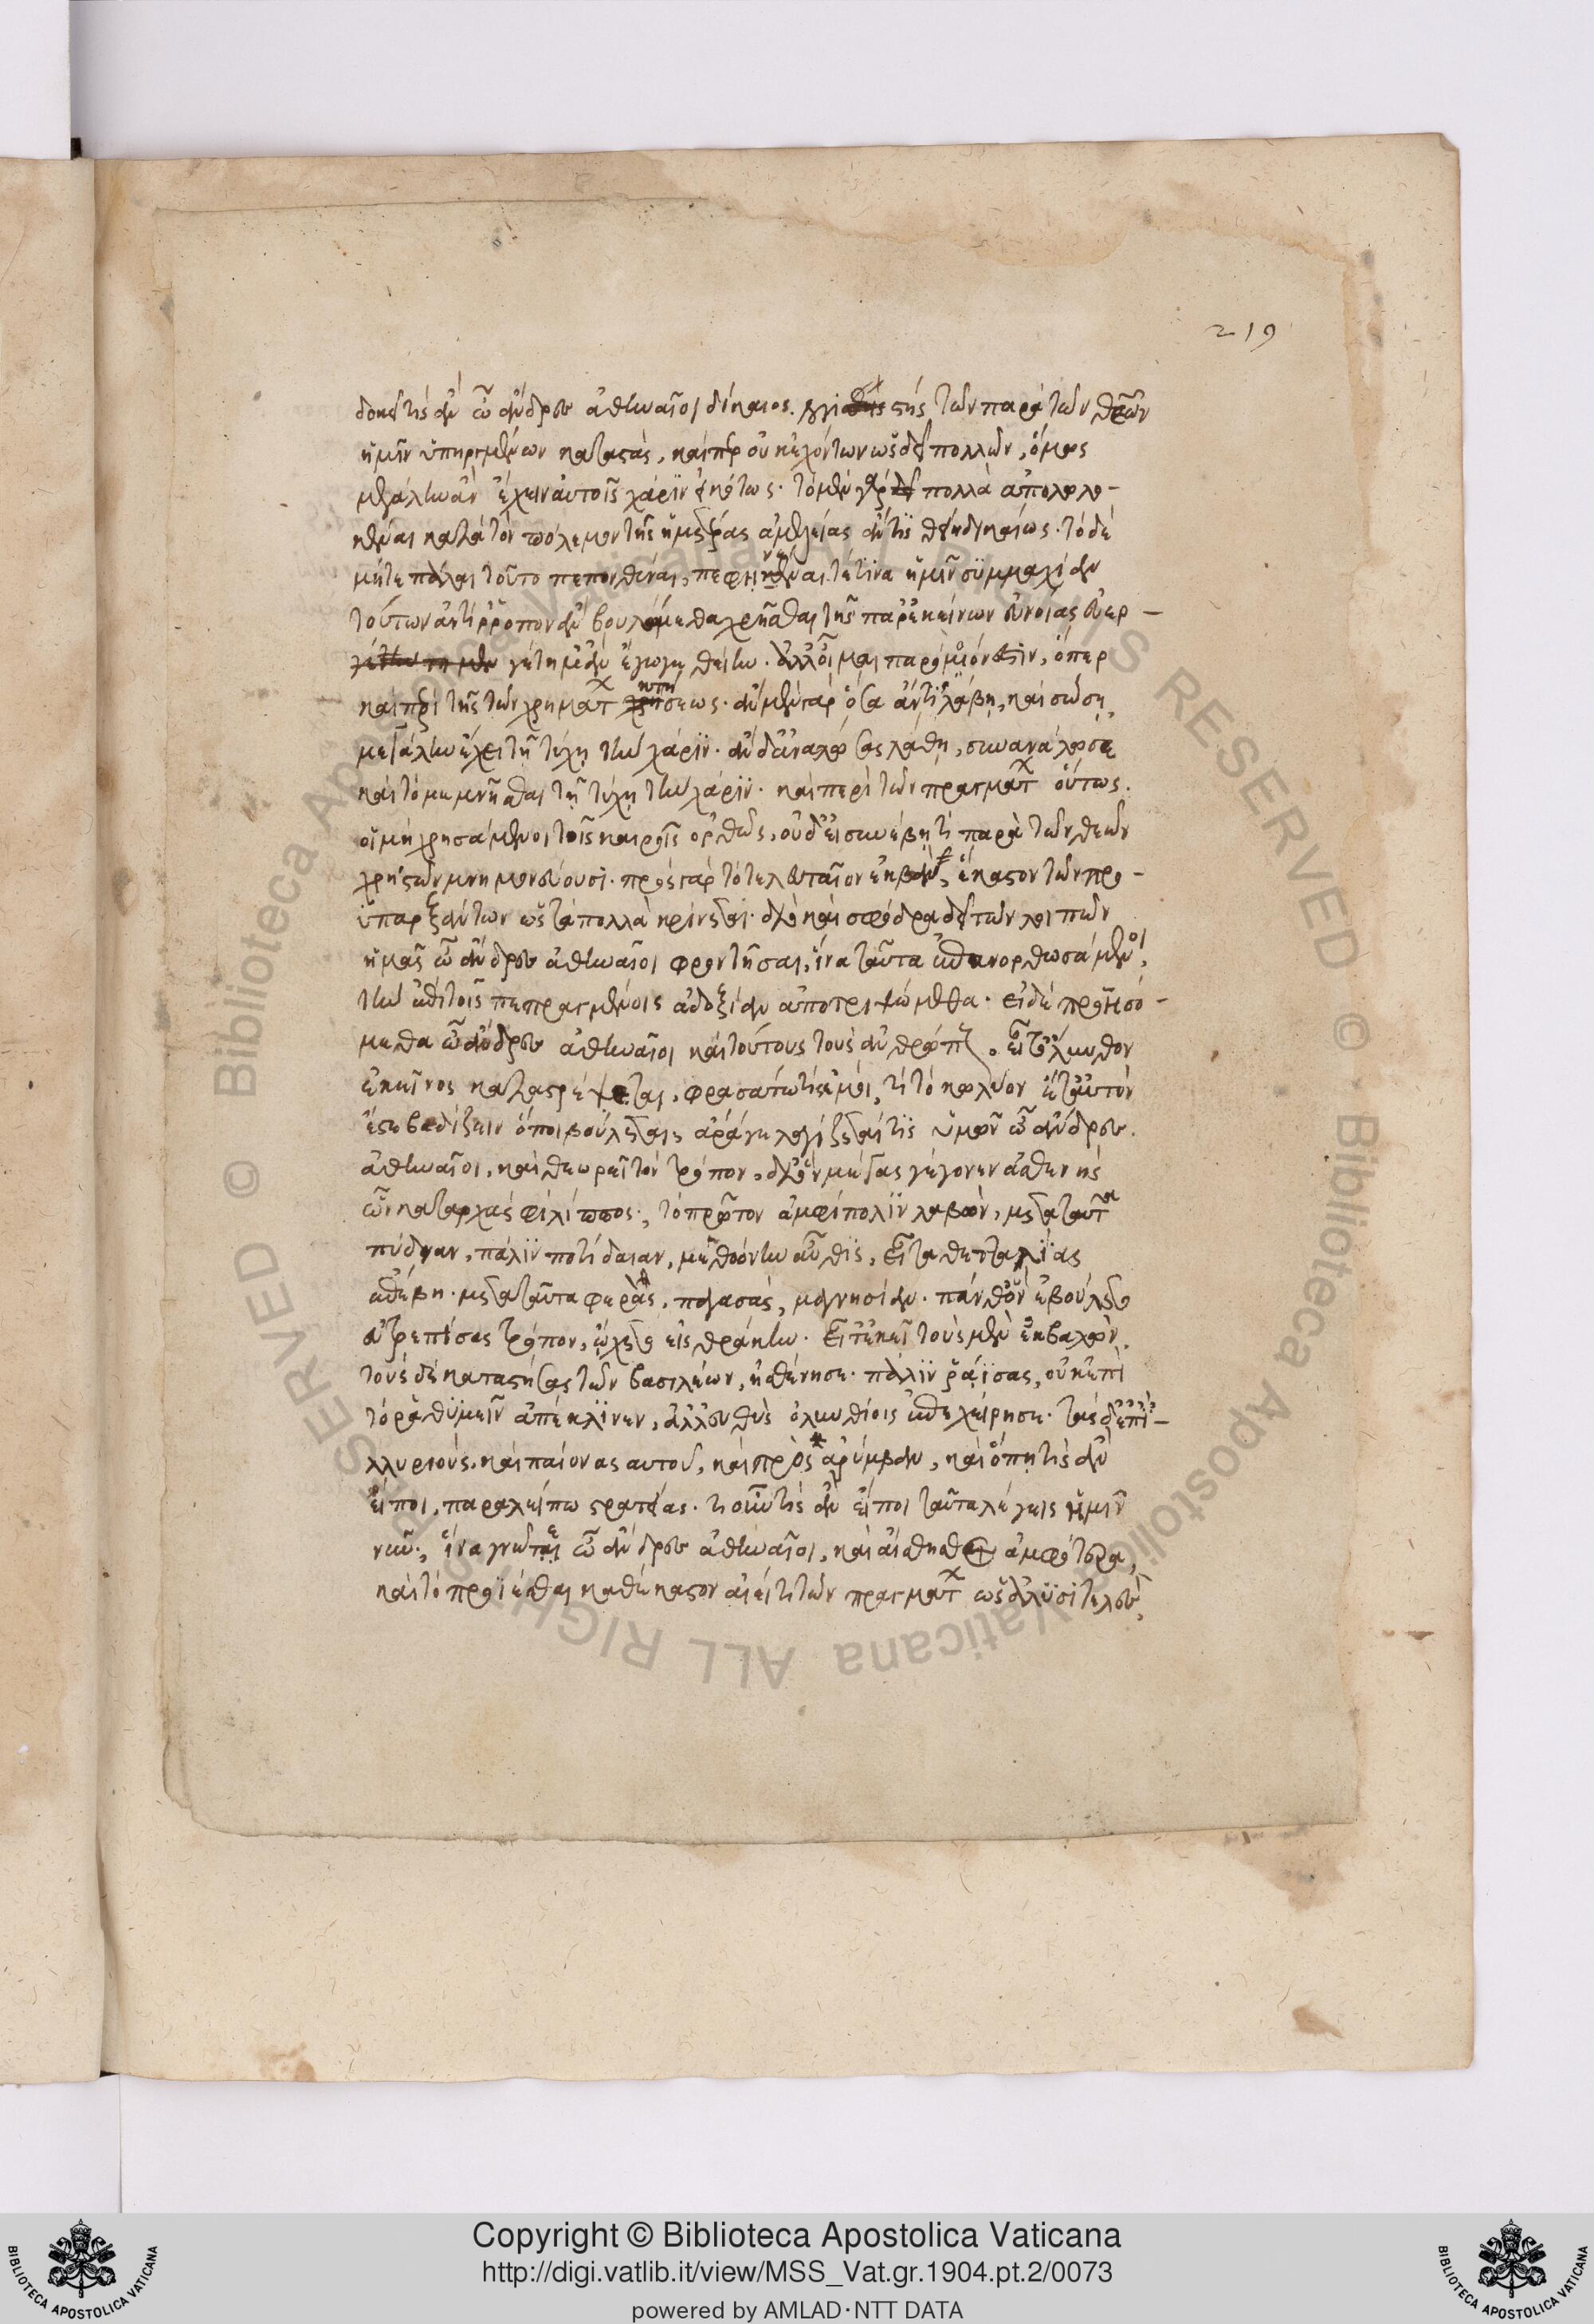 219
δοκεῖ τίς ἂν ὦ ἄνδρες ἀθηναῖοι δίκαιος λογιστὴς τῶν παρὰ τῶν θεῶν
ἡμῖν ὑπηργμένων καταστὰς, καίπερ οὐκ ἐχόντων ὡς δεῖ πολλῶν, ὅμως
μεγάλην ἂν ἔχειν αὐτοῖς χάριν εἰκότως· τὸ μὲν γὰρ πολλὰ ἀπολωλε-
κέναι κατὰ τὸν πόλεμον τῆς ἡμετέρας ἀμελείας ἄν τις θείη δικαίως· τὸ δὲ
μήτε πάλαι τοῦτο πεπονθέναι, πεφηνέναι τέ τινα ἡμῖν συμμαχίαν
τούτων ἀντίρροπον ἂν βουλώμεθα χρῆσθαι τῆς παρ' ἐκείνων εὐνοίας εὐερ-
γέτημ' ἂν ἔγωγε θείην. ἀλλ' οἶμαι παρόμοιόν ἐστιν, ὅπερ
καὶ περὶ τῆς τῶν χρημάτ κτήσεως· ἂν μὲν γὰρ ὅσα ἄν τις λάβῃ, καὶ σώσῃ,
μεγάλην ἔχει τῇ τύχῃ τὴν χάριν· ἂν δ' ἀναλώσας λάθῃ, συνανάλωσε
καὶ τὸ μεμνῆσθαι τῇ τύχῃ τὴν χάριν· καὶ περὶ τῶν πραγμάτ οὕτως.
οἱ μὴ χρησάμενοι τοῖς καιροῖς ὀρθῶς, οὐδ' εἰ συνέβη τί παρὰ τῶν θεῶν
χρηστῶν μνημονεύουσι· πρὸς γὰρ τὸ τελευταῖον ἐκβὰν, ἕκαστον τῶν προ-
ϋπαρξάντων ὡς τὰ πολλὰ κρίνεται· διὸ καὶ σφόδρα δεῖ τῶν λοιπῶν
ἡμᾶς ὦ ἄνδρες ἀθηναῖοι φροντῖσαι, ἵνα ταῦτα ἐπανορθωσάμενοι,
τὴν ἐπὶ τοῖς πεπραγμένοις ἀδοξίαν ἀποτριψώμεθα. εἰ δὲ προησό-
μεθα ὦ ἄνδρες ἀθηναῖοι καὶ τούτους τοὺς ἀνθρώπ. εἶτ' ὄλυνθον
ἐκεῖνος καταστρέψεται, φρασάτω τίς ἐμοί, τί τὸ κωλύον ἔτ' αὐτὸν
ἔσται βαδίζειν ὅποι βούλεται, ἆρά γε λογίζεταί τις ὑμῶν ὦ ἄνδρες.
ἀθηναῖοι, καὶ θεωρεῖ τὸν τρόπον, δι' ὃν μέγας γέγονεν ἀσθενὴς
ὢν καταρχὰς φίλιππος·, τὸ πρῶτον ἀμφίπολιν λαβὼν, μετὰ ταῦτα
πύδναν, πάλιν ποτίδαιαν, μεθώνην αὖθις, εἶτα θετταλίας
ἐπέβη· μετὰ ταῦτα φεράς, παγασὰς, μαγνησίαν· πάνθ' ὃν ἐβούλετο
εὐτρεπίσας τρόπον, ᾤχετο εἰς θράκην· εἶτ' ἐκεῖ τοὺς μὲν ἐκβαλὼν.
τοὺς δὲ καταστήσας τῶν βασιλέων, ἠσθένησε· πάλιν ῥαΐσας, οὐκ ἐπὶ
τὸ ῥᾳθυμεῖν ἀπέκλινεν, ἀλλ' εὐθὺς ὀλυνθίοις ἐπεχείρησε· τὰς δ' ἐπὶ-
λλυριοὺς καὶ παίονας αυτοῦ, καὶ πρὸς ἀρύμβαν, καὶ ὅπῃ τίς ἂν
εἴποι, παραλείπω στρατείας· τί οὖν τίς ἂν εἴποι ταῦτα λέγεις ἡμῖν
νῦν·, ἵνα γνῶτε ὦ ἄνδρες ἀθηναῖοι, καὶ αἴσθησθε ἀμφότερα,
καὶ τὸ προΐεσθαι καθέκαστον αἰεί τι τῶν πραγμάτ ὡς ἀλυσιτελὲς,
Copyright © Biblioteca Apostolica Vaticana
http://digi.vatlib.it/view/MSS_Vat.gr.1904.pt.2/0073
powered by AMLAD·NTT DATA